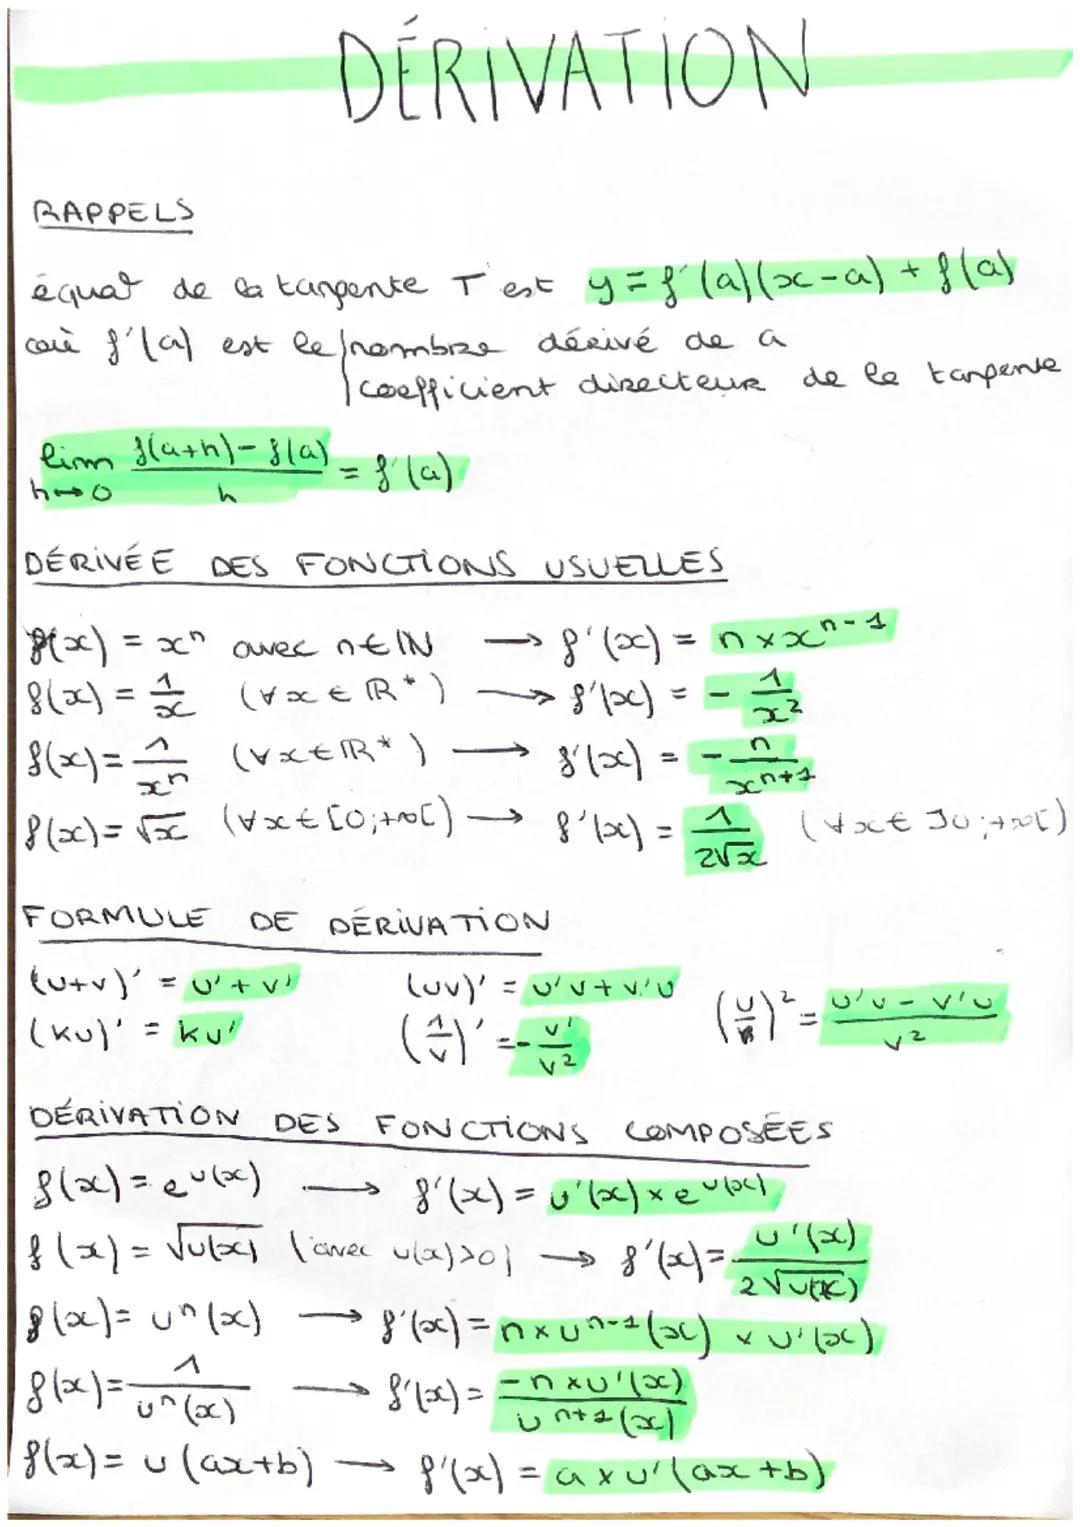 DÉRIVATION
RAPPELS
équat° de la tangente T est y = f'(a)(x-a) + f(a)
où f'(a) est le nombre dérivé de a
coefficient directeur de la tangente
lim h→0 (f(a+h) - f(a))/h = f'(a)
DÉRIVÉE DES FONCTIONS USUELLES
f(x) = xⁿ avec n∈ℕ → f'(x) = n × xⁿ⁻¹
f(x) = 1/x (∀x ∈ ℝ*) → f'(x) = - 1/x²
f(x) = 1/xⁿ (∀x∈ℝ*) → f'(x) = - n/xⁿ⁺¹
f(x) = √x (∀x∈[0;+∞[) → f'(x) = 1/(2√x) (∀x∈]0;+∞[)
FORMULE DE DÉRIVATION
(u+v)' = u' + v' (uv)' = u'v + v'u
(ku)' = ku' (1/v)' = - v'/v² (u/v)² = (u'v - v'u)/v²
DÉRIVATION DES FONCTIONS COMPOSÉES
f(x) = e^u(x) → f'(x) = u'(x) × e^u(x)
f(x) = √u(x) (avec u(x)>0) → f'(x) = u'(x)/(2√u(x))
f(x) = uⁿ(x) → f'(x) = n × uⁿ⁻¹(x) × u'(x)
f(x) = 1/uⁿ(x) → f'(x) = (-n × u'(x))/uⁿ⁺¹(x)
f(x) = u(ax+b) → f'(x) = a × u'(ax+b)